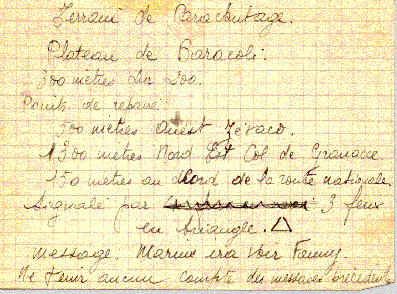 Terrain de Parachutage.
Plateau de Baracoli:
300 mètres sur 200.
Points de repaire:
500 mètres Ouest Zévaco.
1300 mètres Nord Est Col de Granace
150 mètres au Nord de la route nationale
Signalé par 3 feux
en triangle.
message. Marius ira voir Fanny.
Ne tenir aucun compte des messages précédents